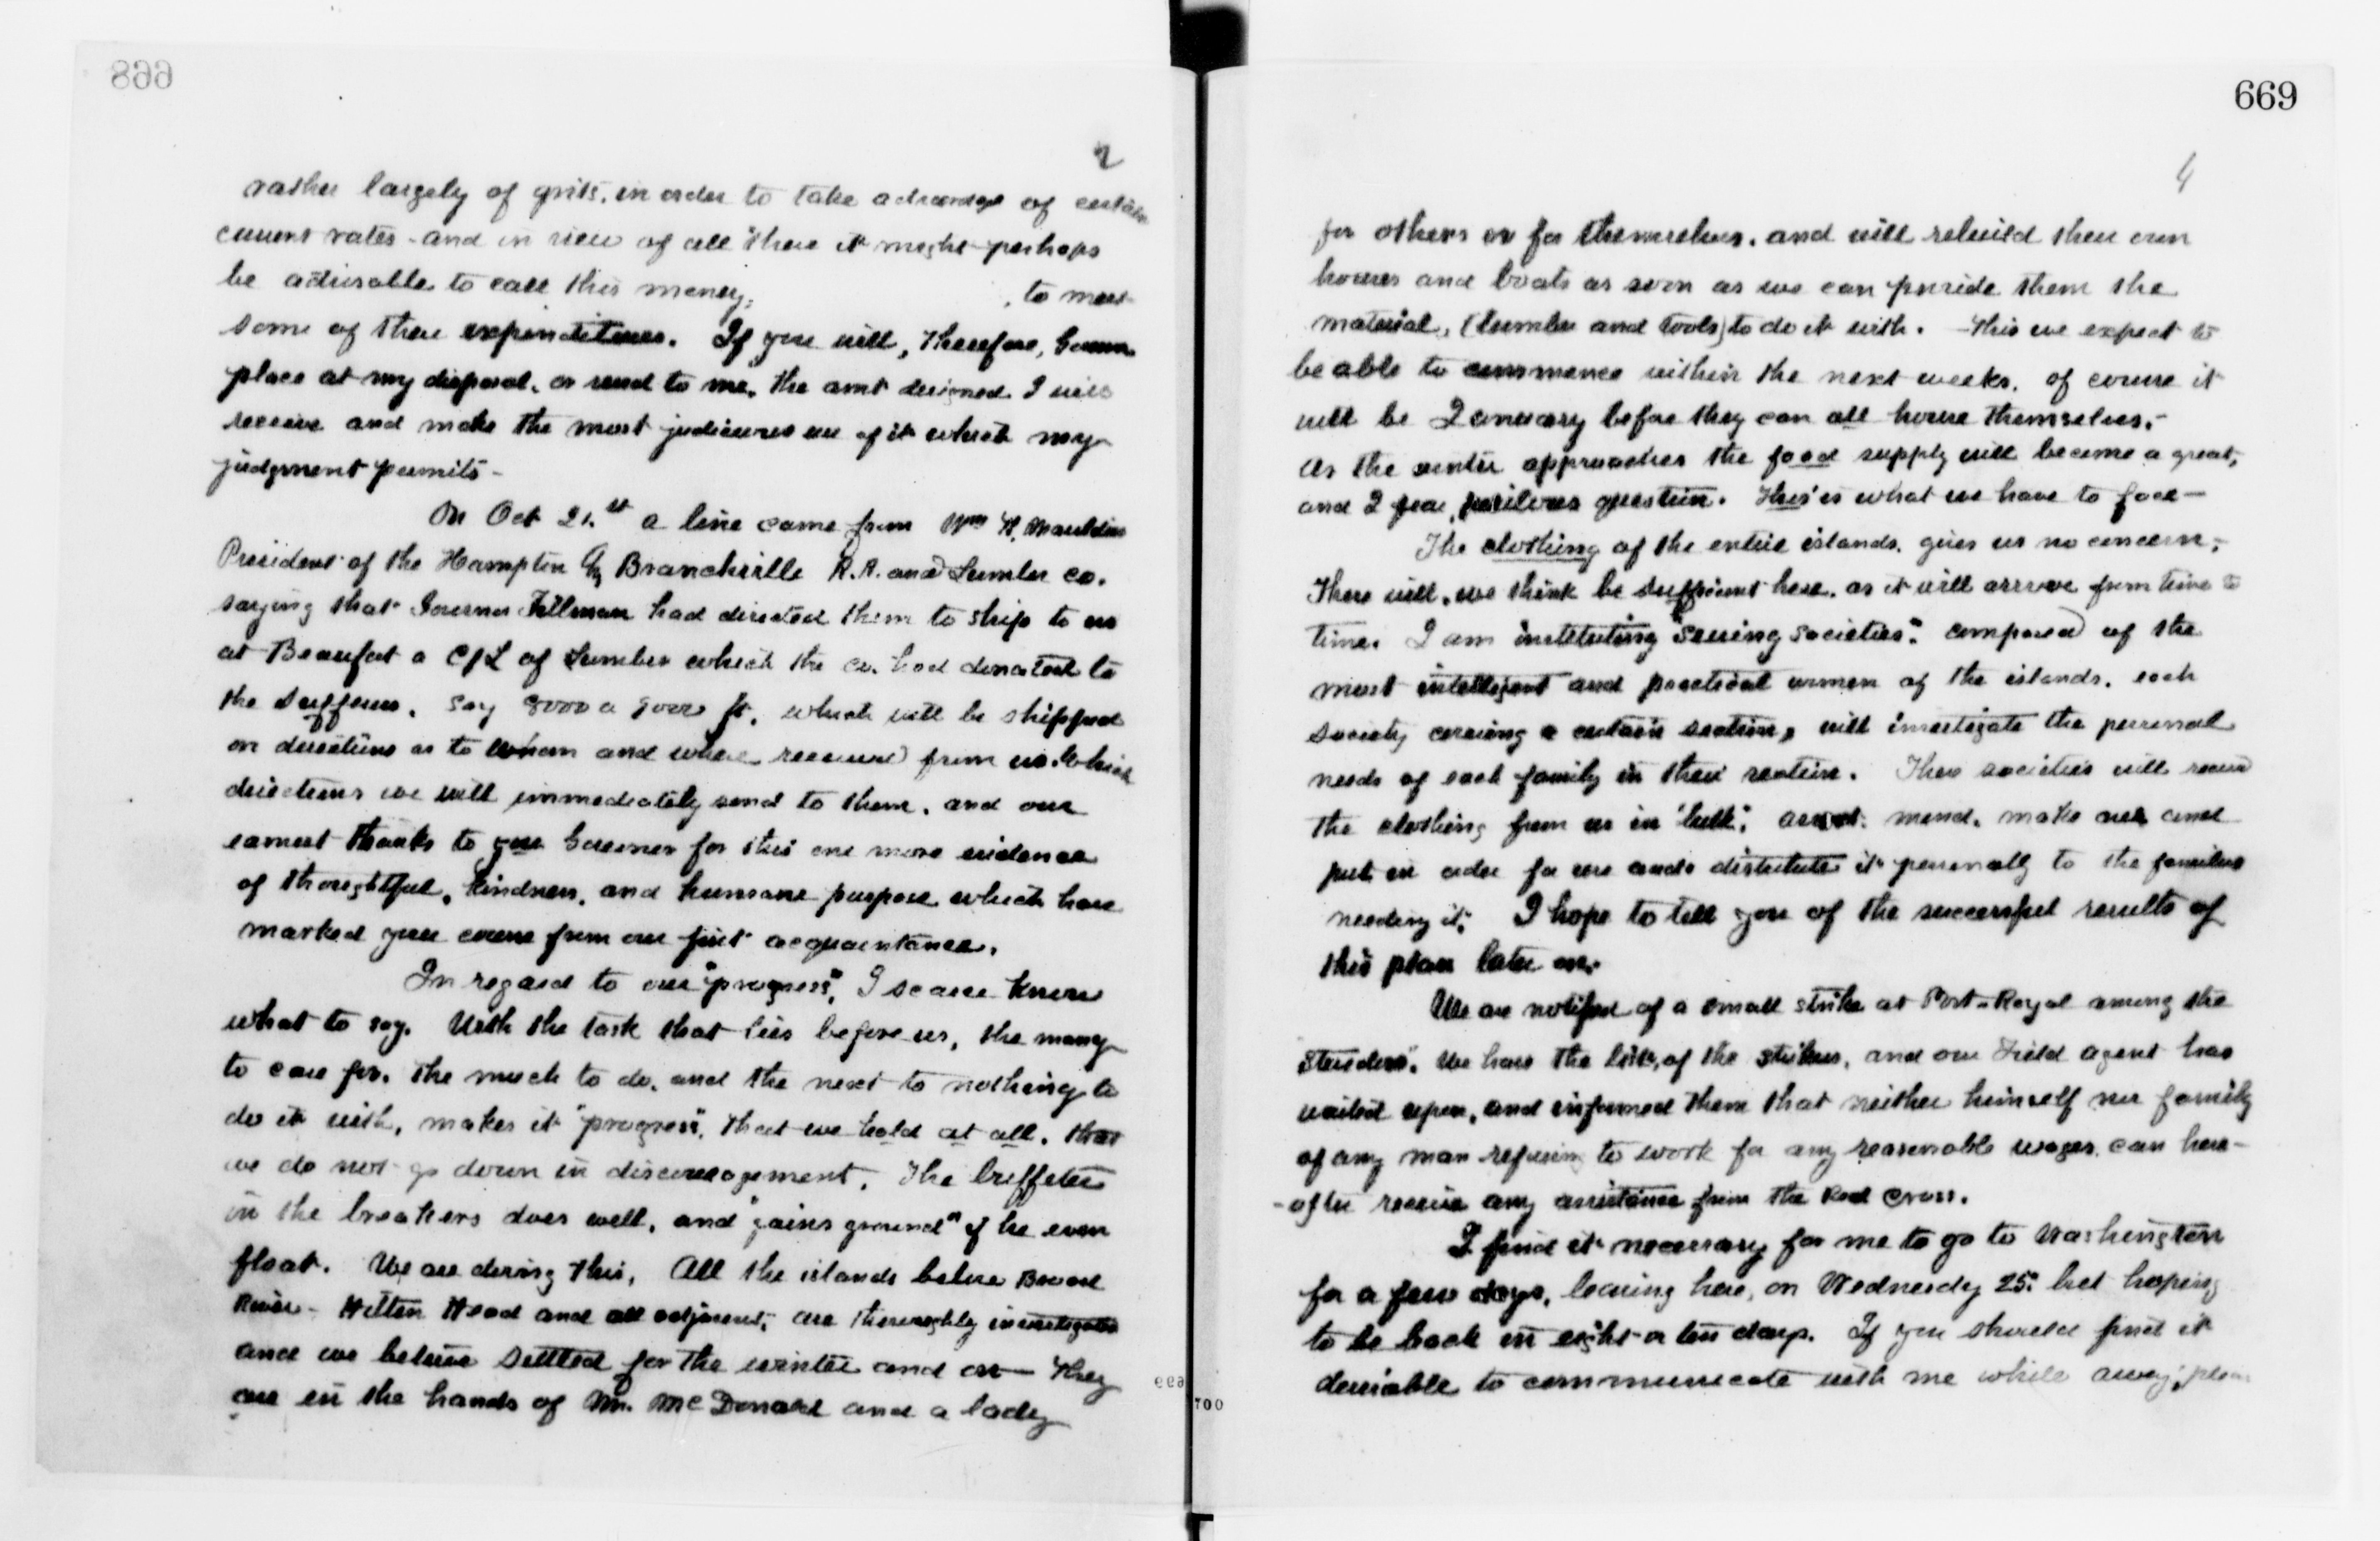 2
rather largely of grits, in order to take advantage of certain
current rates - and in view of all these it might perhaps
be advisable to call this money, , to meet
some of these expenditures. If you will, therefore, Governor
place at my disposal, or send to me, the amt designed I will
receive and make the most judicious use of it which my
judgment permits -
On Oct 21.st a line came from Wm H. Mauldin
President of the Hampton & Branchville R.R. and Lumber co.
saying that Governor Tillman had directed them to ship to us
at Beaufort a C/L of Lumber which the co. had donated to
the sufferers, say 8000 a 9000 ft, which will be shipped
on directions as to whom and where received from us. Which
directions we will immediately send to them, and our
earnest thanks to you Governor for this one more evidence
of thoughtful, kindness, and humane purpose which have
marked your course from our first acquaintance.
In regard to our "progress", I scarce know
what to say. With the task that lies before us, the many
to care for, the much to do, and the next to nothing to
do it with, makes it "progress", that we hold at all, that
we do not go down in discouragement. The buffeter
in the breakers does well, and "gains ground" if he even
float. We are doing this, All the islands below Broad
River - Hilton Head and all adjacent, are thoroughly investigated
and we believe settled for the winter and on — They
are in the hands of Mr. McDonald and a lady
669
4
for others or for themselves, and will rebuild their own
houses and boats as soon as we can provide them the
material, (lumber and tools) to do it with. - This we expect to
be able to commence within the next weeks, of course it
will be January before they can all house themselves. -
As the winter approaches the food supply will become a great,
and I fear, perilous question. This is what we have to face —
The clothing of the entire islands, gives us no concern, -
There will, we think be sufficient here, as it will arrive from time to
time. I am instituting "Sewing Societies", composed of the
most intelligent and practical women of the islands, each
society covering a certain section, will investigate the personal
needs of each family in their section. These societies will receive
the clothing from us in "bulk", assort, mend, make over and
put in order for use and distribute it personally to the families
needing it. I hope to tell you of the successful results of
this plan later on.
We are notified of a small strike at Port-Royal among the
. We have the list, of the strikers, and our Field agent has
waited upon, and informed them that neither himself nor family
of any man refusing to work for any reasonable wages, can here-
-after receive any assistance from the Red Cross.
I find it necessary for me to go to Washington
for a few days, leaving here, on Wednesday 25" but hoping
to be back in eight or ten days. If you should find it
desirable to communicate with me while away, please
700